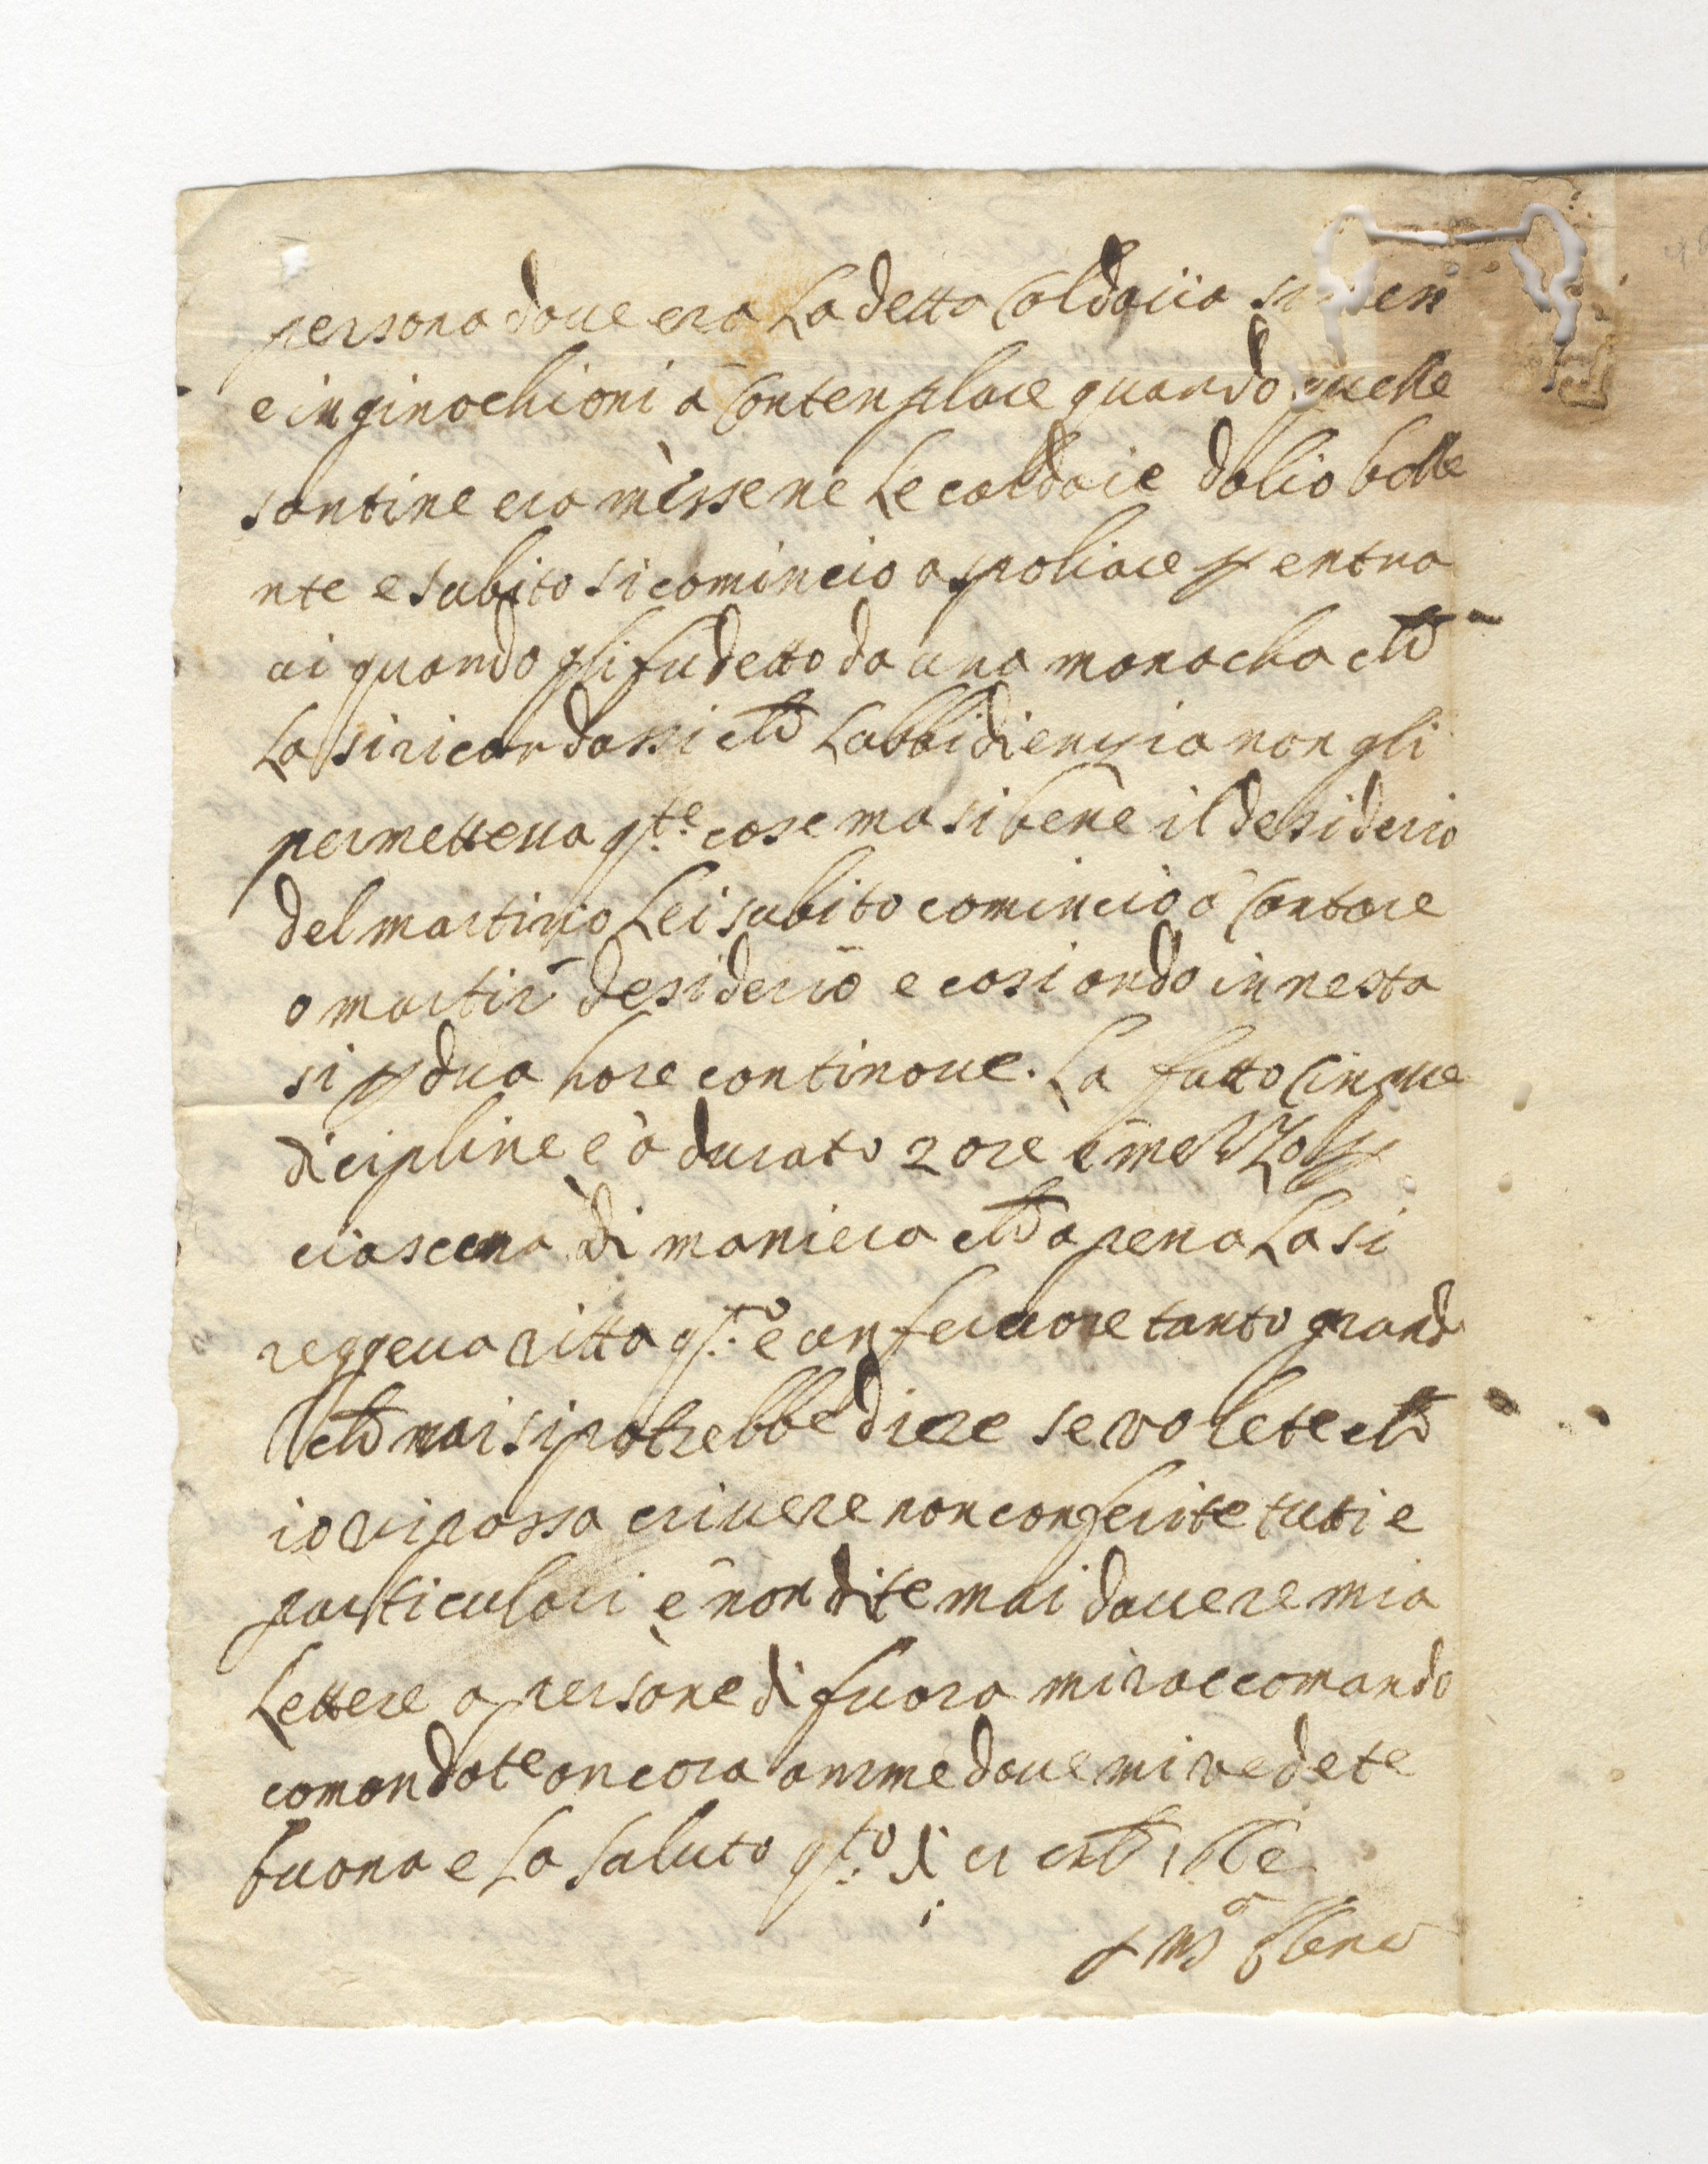 persona doue era La detta Coldaiia si
e inginochioni a Contenplare quando quelle
santine era messe ne Le caldaie dolio bolle
nte e subito si comincio a spoliare p entra
ui quando gli fu detto da una monacha che
La si ricordassi che Labbidienzia non gli
permetteua qte cose ma si bene il desiderio
del martirio Lei subito comincio a Cantare
o martir desiderio e cosi ando in nesta
si p dua hore continoue. La fatto Cinque
dicipline e a durato 2 ore e mezzo p
ciascuna di maniera che apena La si
reggeua ritta qto e un feruore tanto grand
che mai si potrebbe dire se volete che
io vi possa criuere non conferite tutti e
particulari e non dite mai dauere mia
Lettere a persone di fuora mi raccomando
comandate ancora amme doue mi vedete
buona e La saluto qto di